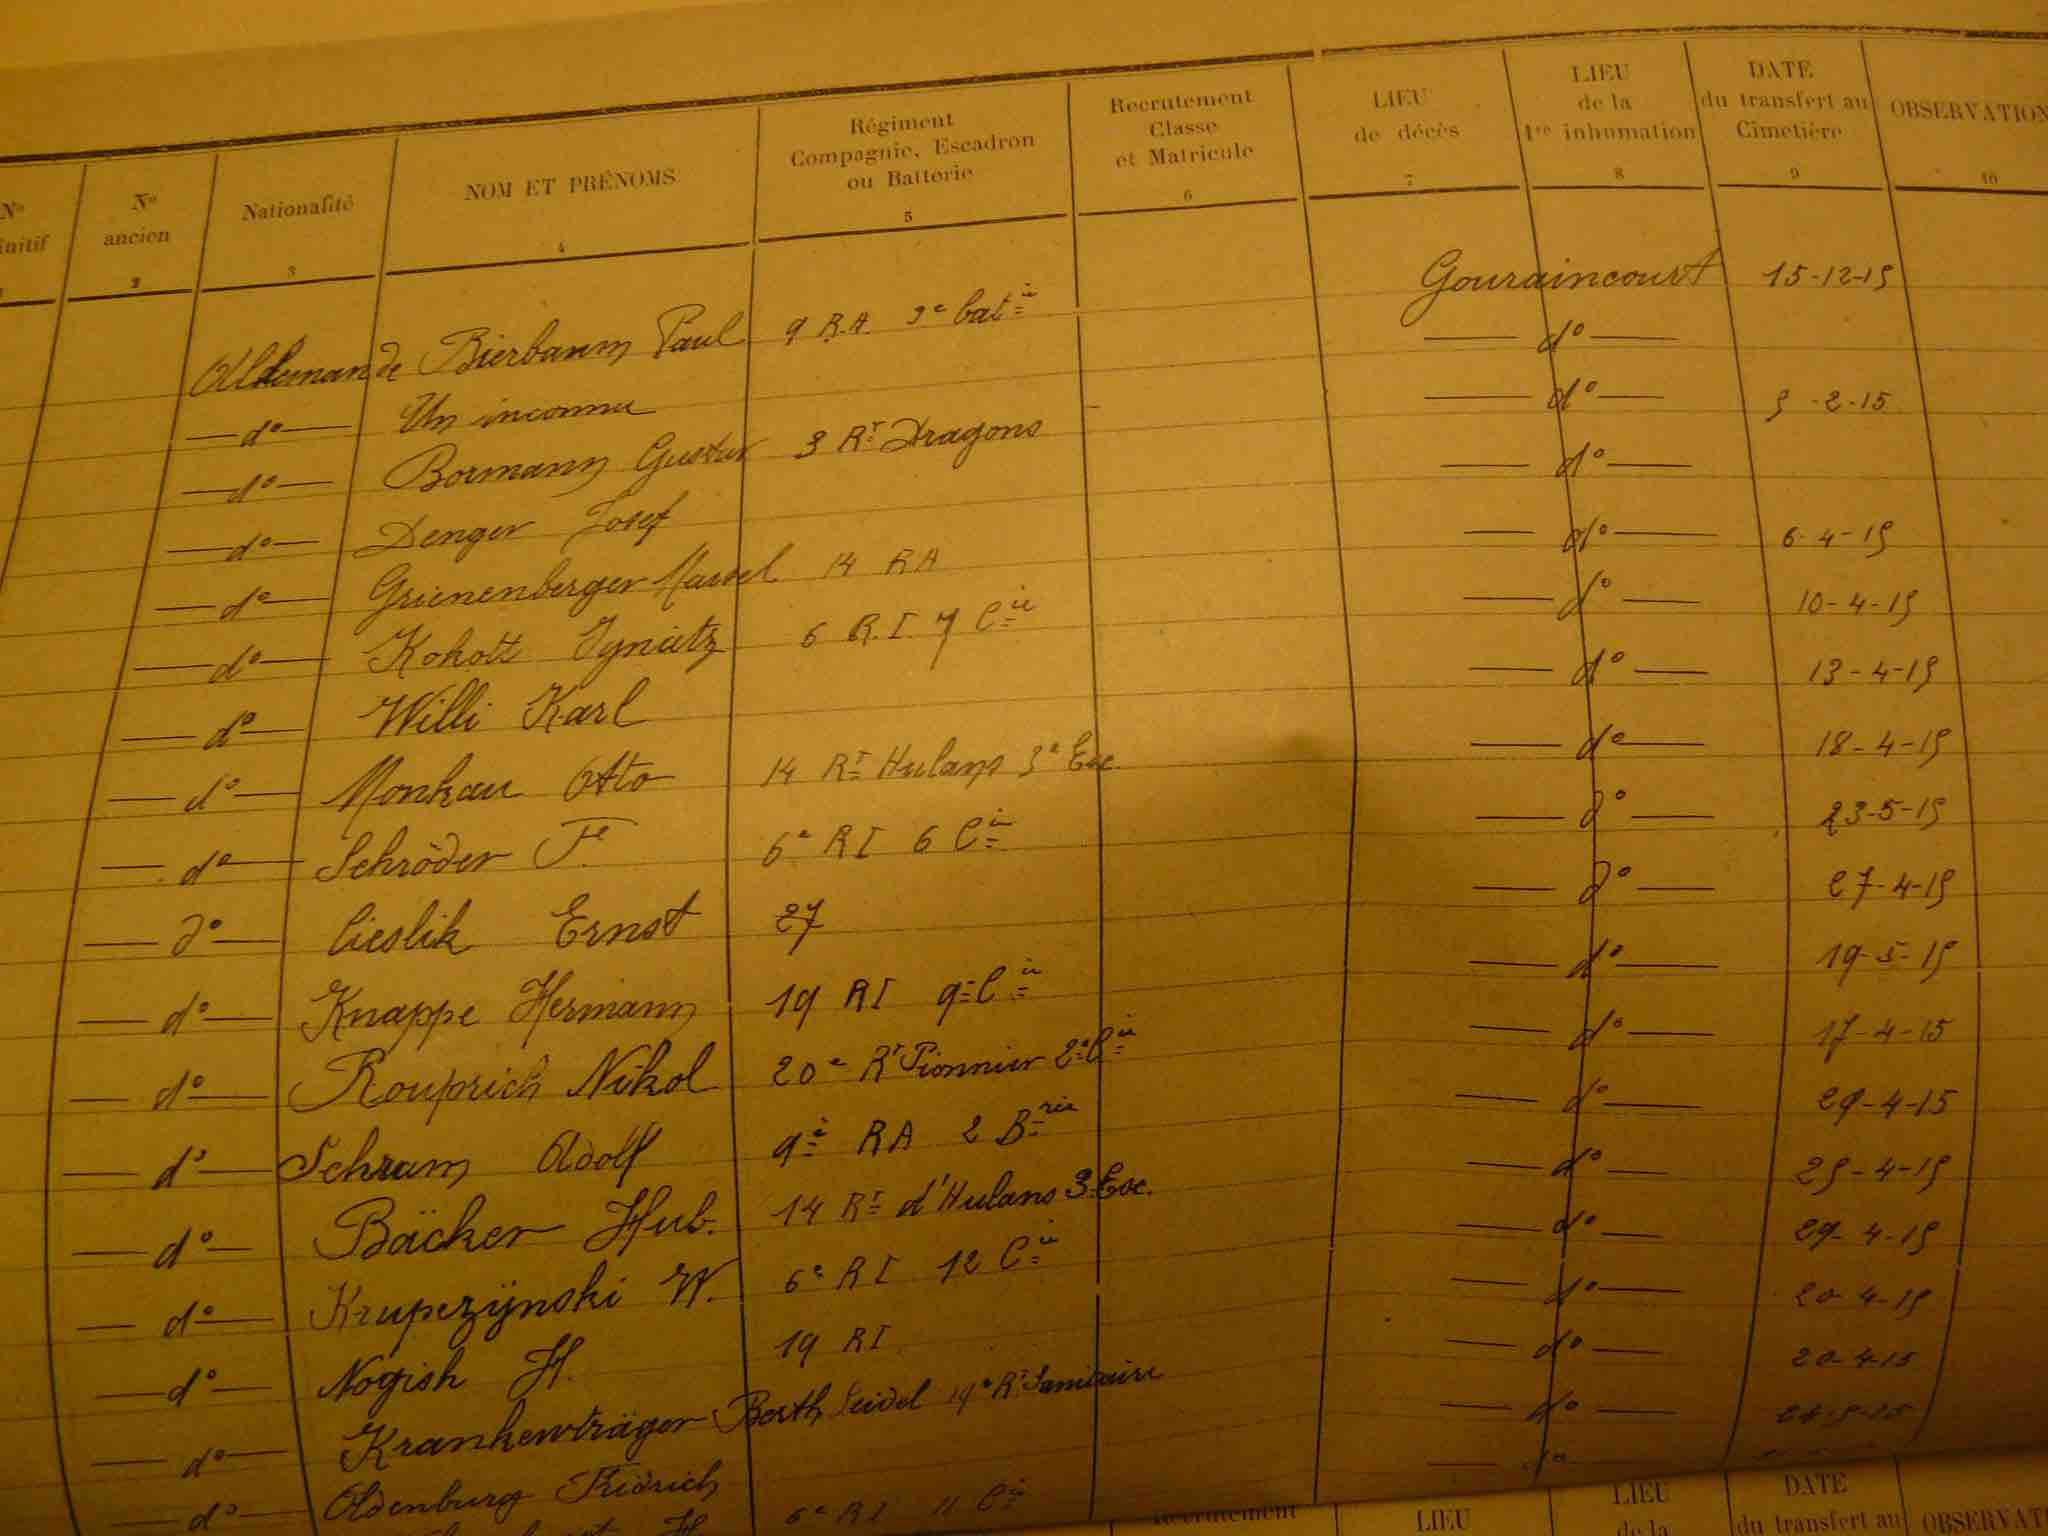 Nº
initif
Nº
ancien
2
Nationalité
3
NOM ET PRÉNOMS
4
Régiment
Compagnie, Escadron
ou Batterie
5
Recrutement
Classe
et Matricule
6
LIEU
de décès
7
LIEU
de la
1re inhumation
8
DATE
du transfert au
Cimetière
9
OBSERVATION
10
Allemande Bierbaum Paul 9 R.A. 3e batie Gouraincourt 15-12-15
do Un inconnu do
do Bormann Gustav 3 Rt Dragons do 3-2-15
do Denger Josef do
do Grienenberger Marcel 14 RA do 6-4-15
do Kohott Ignatz 6 R.I. 7 Cie do 10-4-15
do Willi Karl do 13-4-15
do Monkau Otto 14 Rt Hulans 3e Esc. do 18-4-15
do Schröder F. 6e RI 6 Cie do 23-5-15
do Cieslik Ernst 27 do 27-4-15
do Knappe Hermann 19 RI 9e Cie do 19-5-15
do Rouprich Nikol 20e Rt Pionnier 2e Cie do 17-4-15
do Schram Adolf 9e RA 2 Brie do 29-4-15
do Bäcker Hub. 14 Rt d'Hulans 3 Esc. do 25-4-15
do Krupczÿnski W. 6e RI 12 Cie do 29-4-15
do Nogish H. 19 RI do 20-4-15
do Krankenträger Berth Seidel 19e Rt Sanitaire do 20-4-15
do Oldenburg Fridrich do
6e RI 11 Cie do
Recrutement
LIEU
LIEU
de la
DATE
du transfert au
OBSERVAT